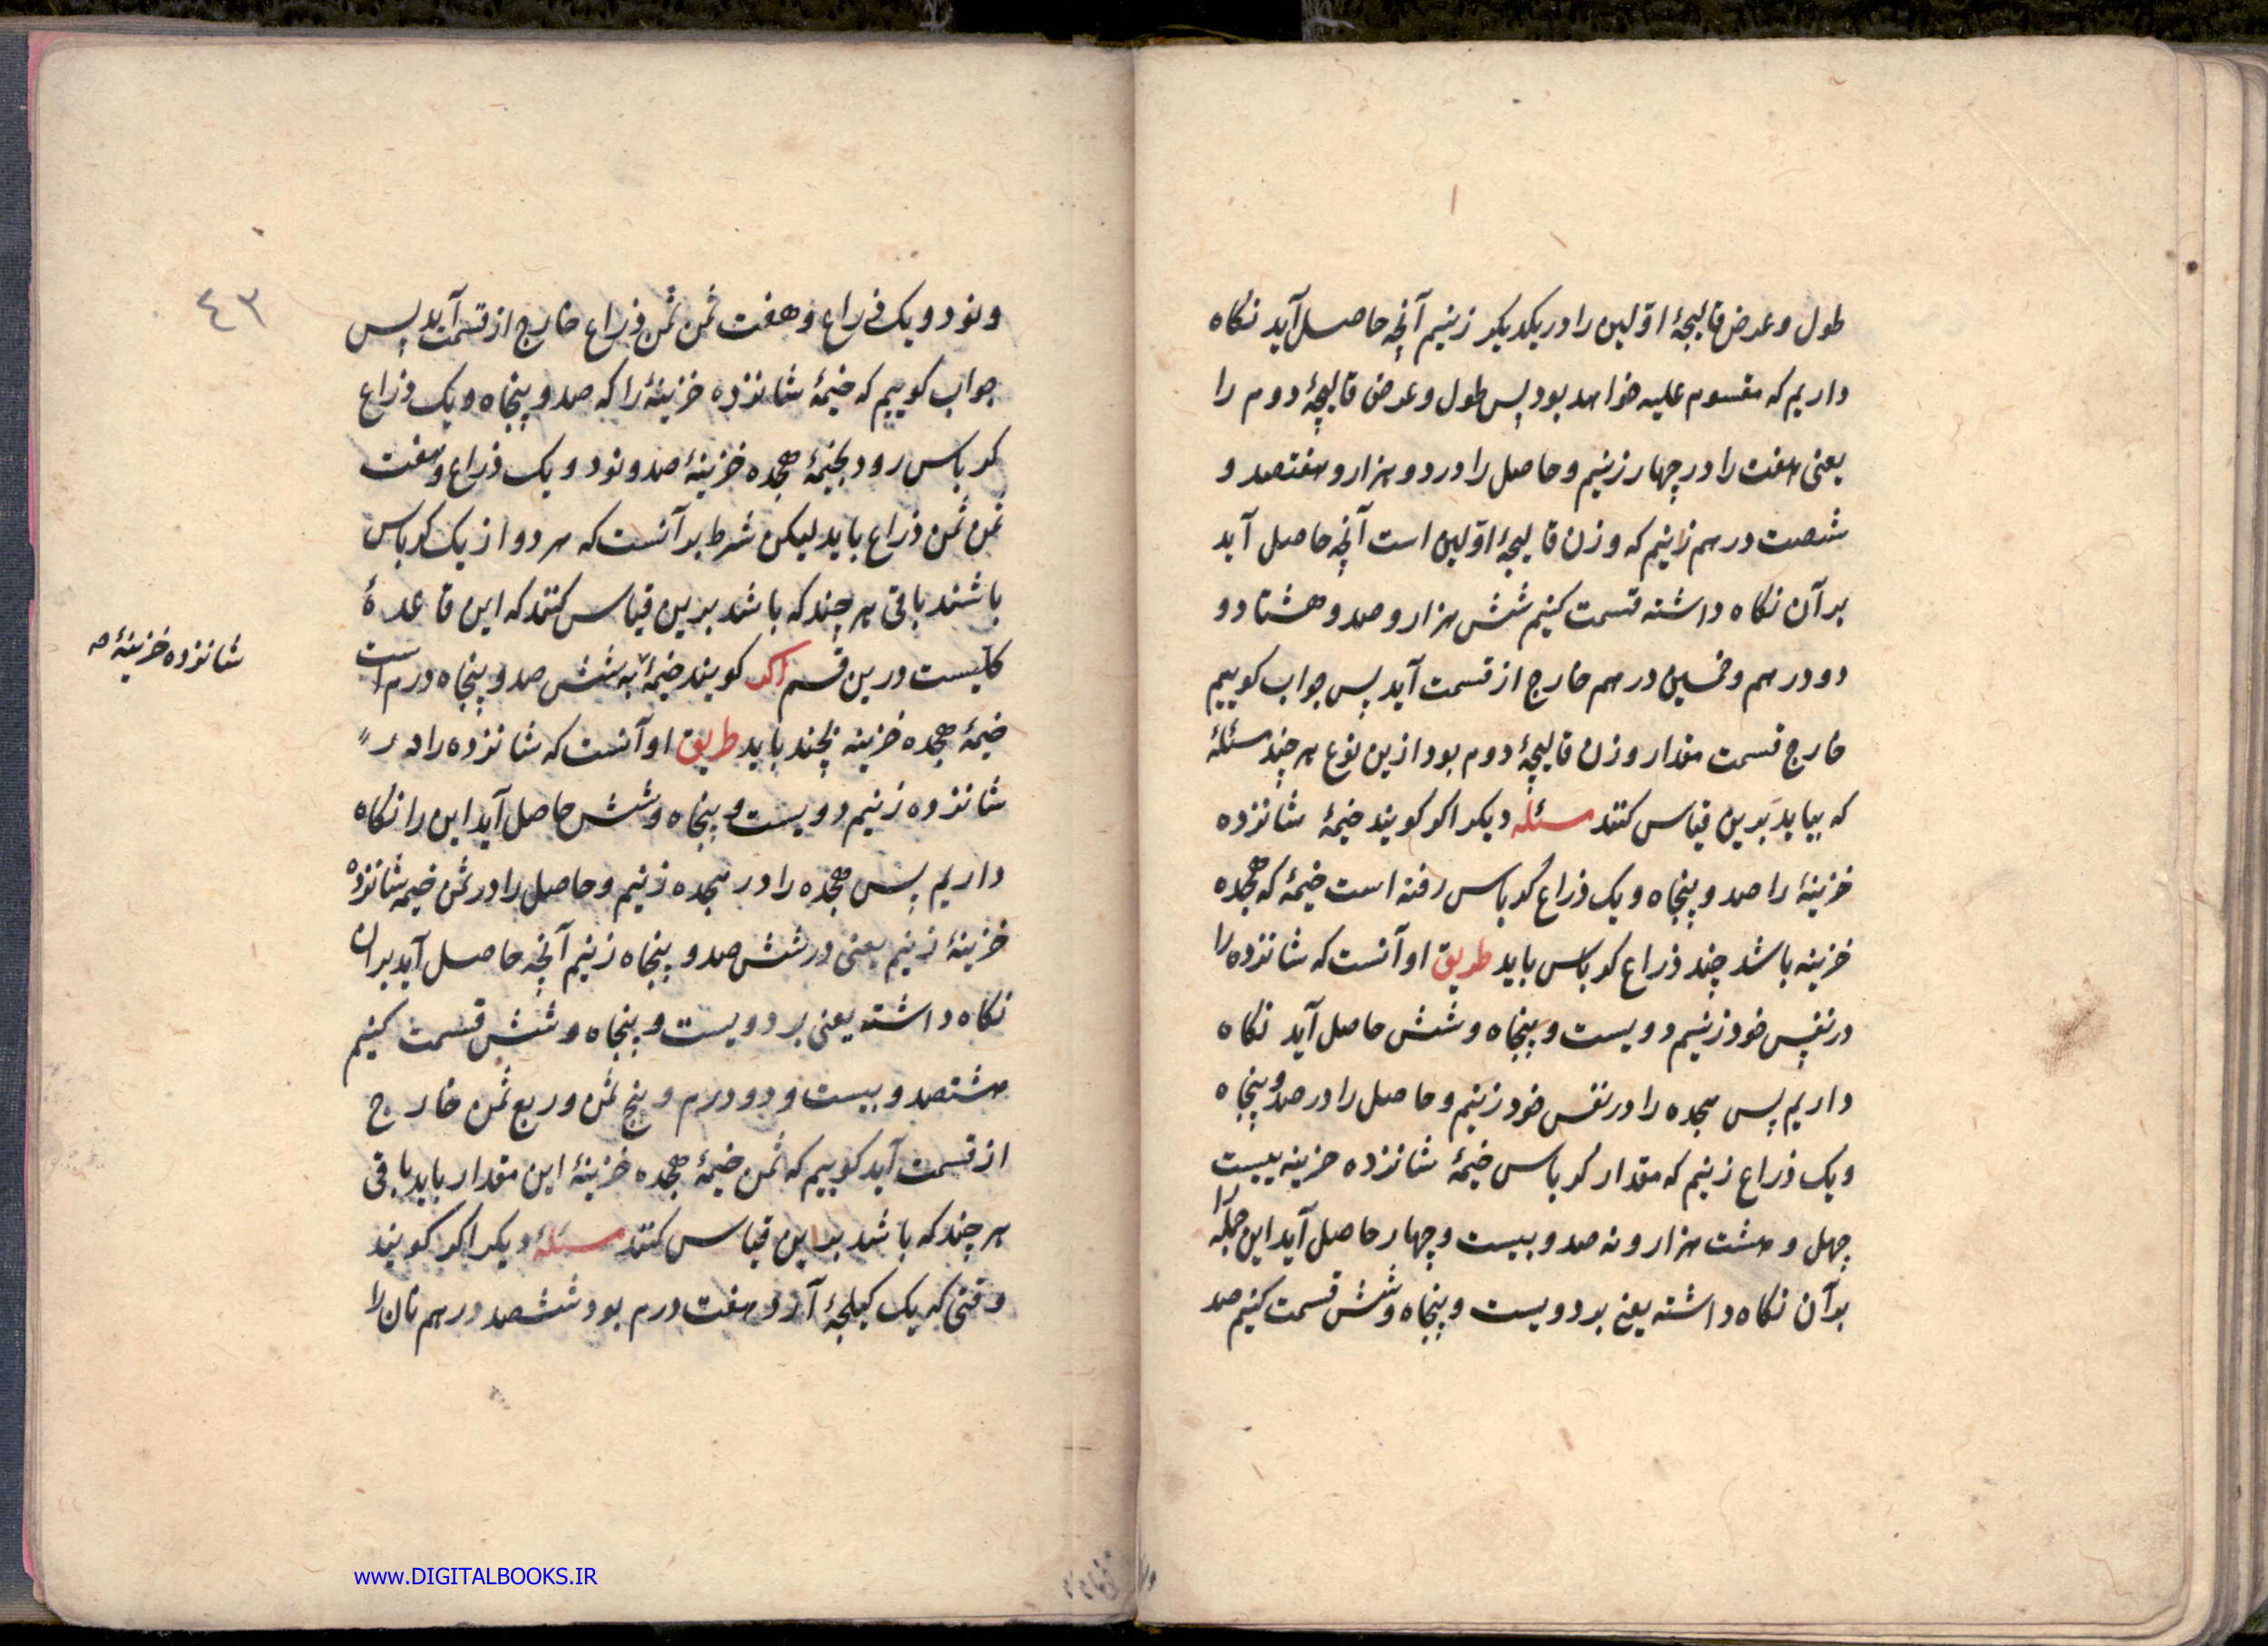 طول و عرض قالیچهٔ اوّلین را در یکدیکر زنیم آنچه حاصل آید نکاه
داریم که مقسوم علیه خواهد بود پس طول و عرض قالیچهٔ دوم را
یعنی هفت را در چهار زنیم و حاصل را در دو هزار و هفتصد و
شصت درهم زنیم که وزن قالیچهٔ اوّلین است آنچه حاصل آید
بر آن نکاه داشته قسمت کنیم شش هزار و صد و هشتاد و
دو درهم و خمسین درهم خارج از قسمت آید پس جواب کوییم
خارج قسمت مقدار وزن قالیچهٔ دوم بود ازین نوع هر چند مسئلهٔ
که بیاید بَرین قیاس کنند مسئله دیکر اکر کویند خیمهٔ شانزده
خزینهٔ را صد و پنجاه و یک ذراع کرباس رفته است خیمهٔ که هجده
خزینه باشد چند ذراع کرباس باید طریق او آنست که شانزده را
در نفس خود زنیم دویست و پنجاه و شش حاصل آید نکاه
داریم پس هجده را در نفس خود زنیم و حاصل را در صد و پنجاه
و یک ذراع زنیم که مقدار کرباس خیمهٔ شانزده خزینه بیست
چهل و هشت هزار و نه صد و بیست و چهار حاصل آید این جمله را
بر آن نکاه داشته یعنی بر دویست و پنجاه و شش قسمت کنیم صد
٤٣
و نود و یک ذراع و هفت ثمن ثمن ذراع خارج از قسمت آید پس
جواب کوییم که خیمهٔ شانزده خزینهٔ را که صد و پنجاه و یک ذراع
کرباس رود بخیمهٔ هجده خزینهٔ صد و نود و یک ذراع و هفت
ثمن ثمن ذراع باید لیکن شرط بر آنست که هر دو از یک کرباس
باشند باقی هر چند که باشد برین قیاس کنند که این قاعدهٔ
کلّیست درین قسم اکر کویند خیمهٔ به شش صد و پنجاه درم است
شانزده خزینهٔ صه
خیمهٔ هجده خزینه بچند باید طریق او آنست که شانزده را در
شانزده زنیم دویست و پنجاه و شش حاصل آید این را نکاه
داریم پس هجده را در هجده زنیم و حاصل را در ثمن خیمه شانزده
خزینهٔ زنیم یعنی در شش صد و پنجاه زنیم آنچه حاصل آید بر آن
نکاه داشته یعنی بر دویست و پنجاه و شش قسمت کنیم
هشتصد و بیست و دو درم و پنج ثمن و ربع ثمن خارج
از قسمت آید کوییم که ثمن خیمهٔ هجده خزینهٔ این مقدار باید باقی
هر چند که باشد بر این قیاس کنند مسئلهٔ دیکر اکر کویند
وقتی که یک کیلجهٔ آرد هفت درم بود ششصد درهم نان را
www.DIGITALBOOKS.IR